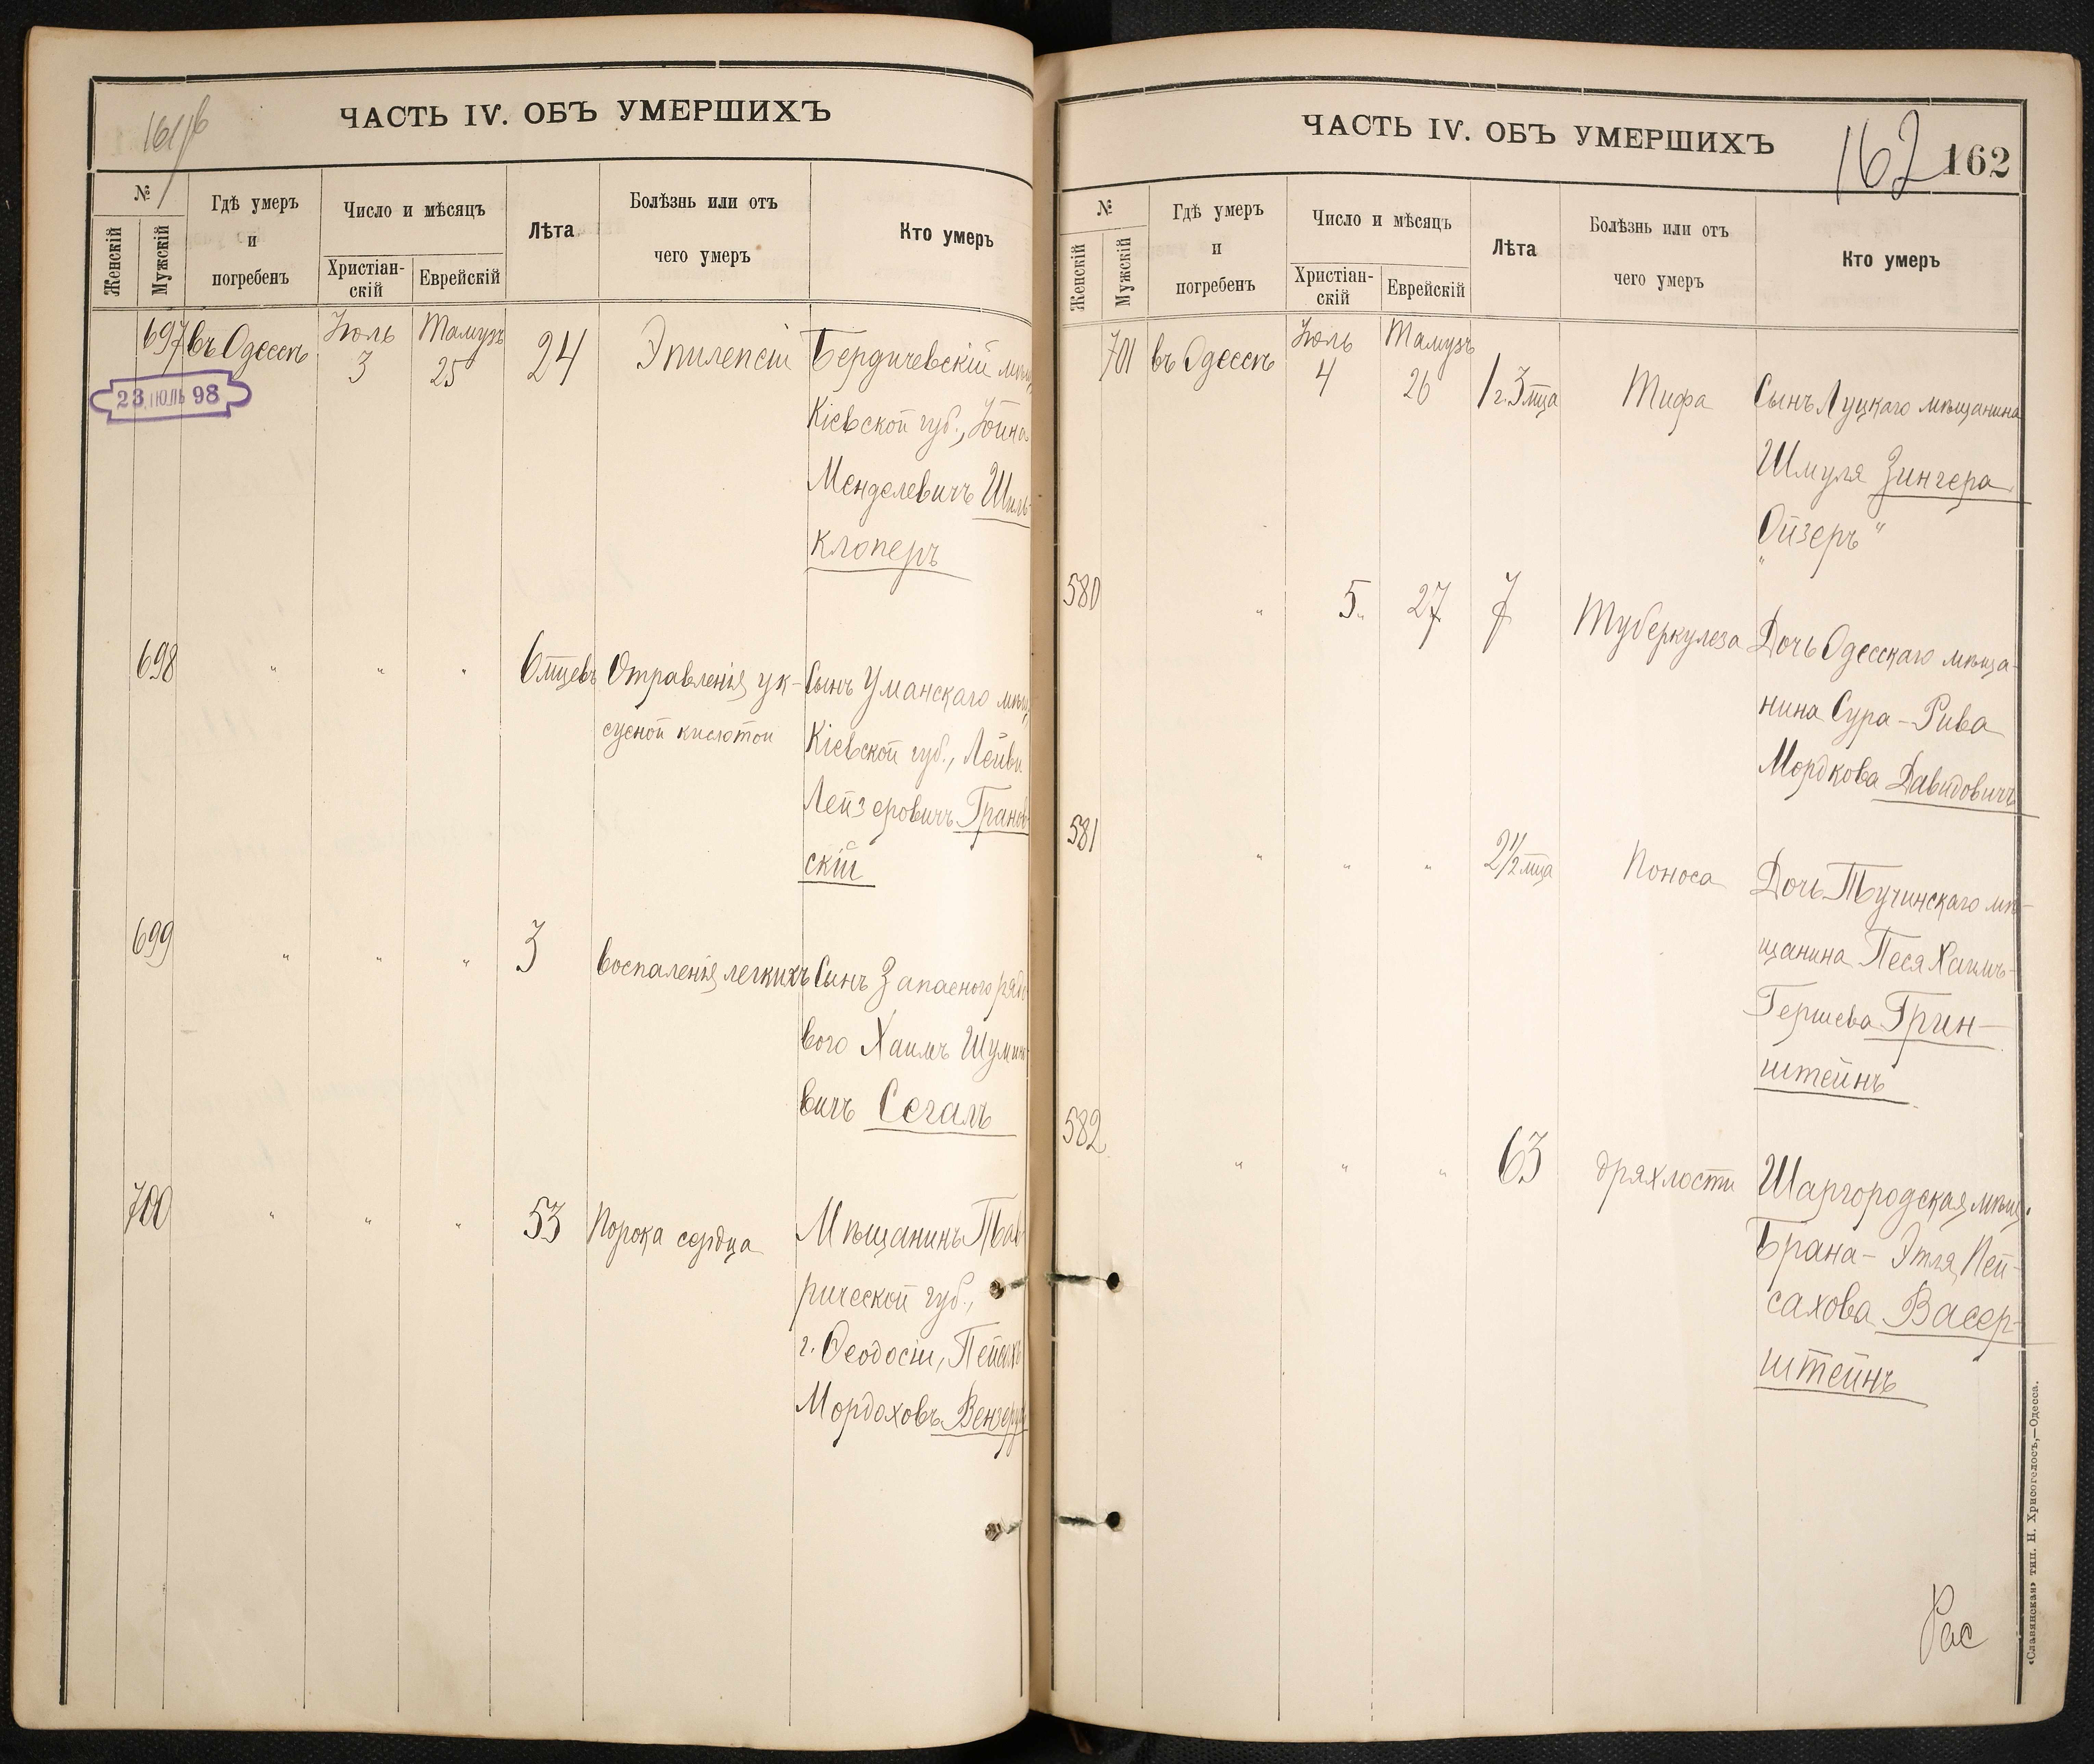 161об
ЧАСТЬ IV. ОБЪ УМЕРШИХЪ
№
Женскій
Мужскій
Гдѣ умеръ
и
погребенъ
Число и мѣсяцъ
Христіан-
скій
Еврейскій
Лѣта
Болѣзнь или отъ
чего умеръ
Кто умеръ
697 въ Одессѣ Іюль 3 Тамузъ 25 24 Эпилепсіи Бердичевскій мѣщ.
23 ІЮЛЬ 98
Кіевской губ., Іойна
Менделевичъ Шиль-
клоперъ
698 " " " 6 мцевъ Отравленія ук- Сынъ Уманскаго мѣщ.
сусной кислотой Кіевской губ., Лейви
Лейзеровичъ Гранов-
скій
699 " " " 3 Воспаленія легкихъ Сынъ Запаснаго рядо-
вого Хаимъ
вичъ Сегалъ
700 " " " 53 Порока сердца Мѣщанинъ Тав-
рической губ.,
г. Ѳеодосіи, Пейсахъ
Мордоховъ
ЧАСТЬ IV. ОБЪ УМЕРШИХЪ
162 162
№
Женскій
Мужскій
Гдѣ умеръ
и
погребенъ
Число и мѣсяцъ
Христіан-
скій
Еврейскій
Лѣта
Болѣзнь или отъ
чего умеръ
Кто умеръ
701 въ Одессѣ Іюль 4 Тамузъ 26 1 г. 3 мца Тифа Сынъ Луцкаго мѣщанина
Шмуля Зингера
"Ойзеръ"
580 " 5 27 7 Туберкулеза Дочь Одесскаго мѣща-
нина Сура-Рива
Мордкова Давидовичъ
581 " " " 2 1/2 мца Поноса Дочь Тучинскаго мѣ-
щанина Песя Хаимъ-
Гершева Грин-
штейнъ
582 " " " 63 дряхлости Шаргородская мѣщ.
Брана-Этля Пей-
сахова Васер-
штейнъ
Рас
«Славянская» тип. Н. Хрисогелосъ,—Одесса.